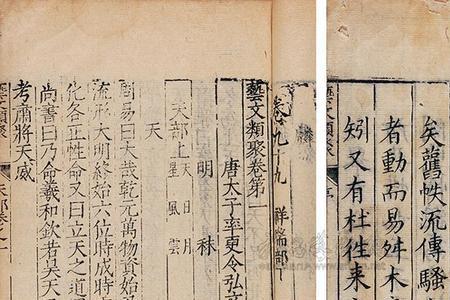 矣舊帙流傳騷
者動而易舛木
矧又有杜徃来
藝文類聚
卷九十九 祥瑞部
藝文類聚卷第
唐太子率更令弘文
明 秣
天部上 天 日 月 星 風 雲
天
周易曰大哉乾元萬物資始
流形大明終始六位時成時
化各正性命又曰立天之道
尚書曰乃命羲和欽若昊天
考肅將天威
藝文類聚 天部卷之一